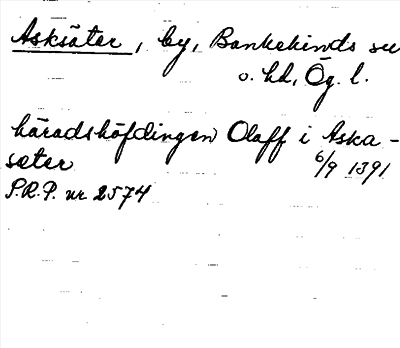 Asksäter, by, Bankekinds sn
o. hd, Ög. l.
häradshöfdingen Olaff i Aska-
sæter 6/9 1391
P.R.P. nr 2574